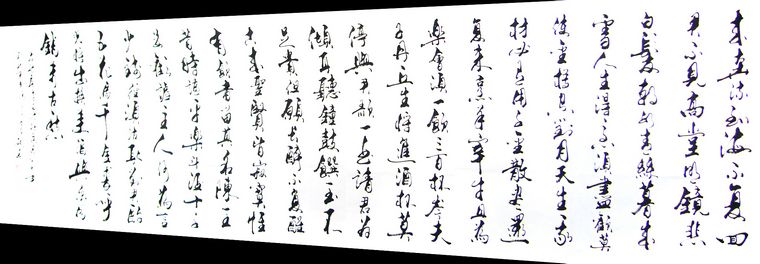 来奔流到海不复回
君不見高堂明鏡悲
白髮朝如青絲暮成
雪人生得意須盡歡莫
使金樽空對月天生我
材必有用千金散盡還
复来烹羊宰牛且為
樂會須一飲三百杯岑夫
子丹丘生將進酒杯莫
停與君歌一曲請君為
傾耳聽鐘鼓饌玉不
足貴但願長醉不复醒
古来聖賢皆寂寞惟
有飲者留其名陳王
昔時宴平樂斗酒十千
恣歡謔主人何為言
少錢徑須沽取對君酌
五花馬千金裘呼
兒將出換美酒與爾同
銷萬古愁